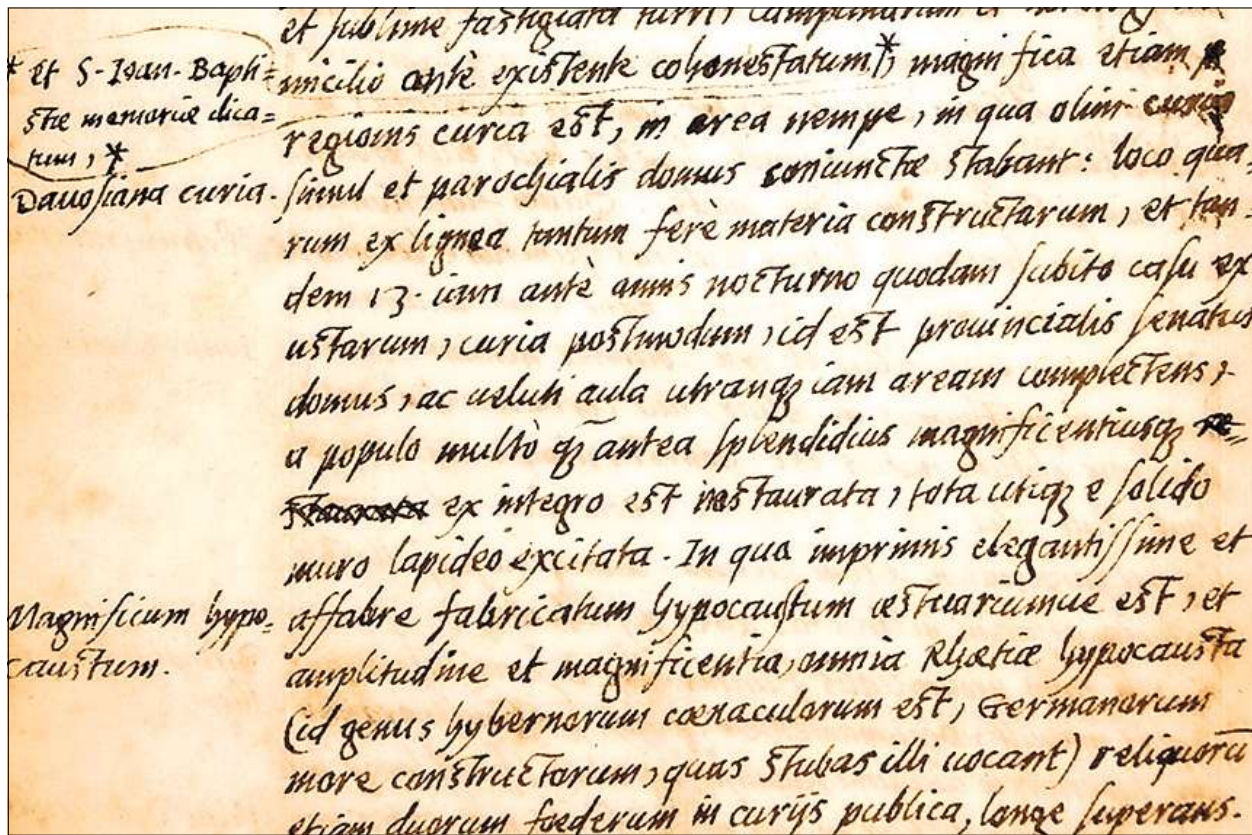 et sublime fastigiata turri, campanarum et
* et S. Ioan. Bapti=
stæ memoriæ dica=
tum, *
nicilio antè existente cohonestatum*, magnifica etiam
regionis curia est, in area nempe, in qua olim curia
Dauosiana curia.
simul et parochialis domus coniunctæ stabant: loco qua-
rum ex lignea tantum ferè materia constructarum, et tan-
dem 13. iam antè annis nocturno quodam subito casu ex
ustarum, curia postmodum, id est prouincialis senatus
domus, ac ueluti aula utranqꝫ iam aream complectens,
a populo multò qꝫ antea splendidius magnificentiusqꝫ re-
staurata ex integro est instaurata, tota utiqꝫ e solido
muro lapideo excitata. In qua imprimis elegantissime et
Magnificum hypo=
caustum.
affabre fabricatum hypocaustum æstuariumue est, et
amplitudine et magnificentia, omnia Rhætiæ hypocausta
(id genus hybernorum cœnaculorum est, Germanorum
more constructarum, quas stubas illi uocant) reliquorū
etiam duorum fœderum in curijs publica, longe superans.